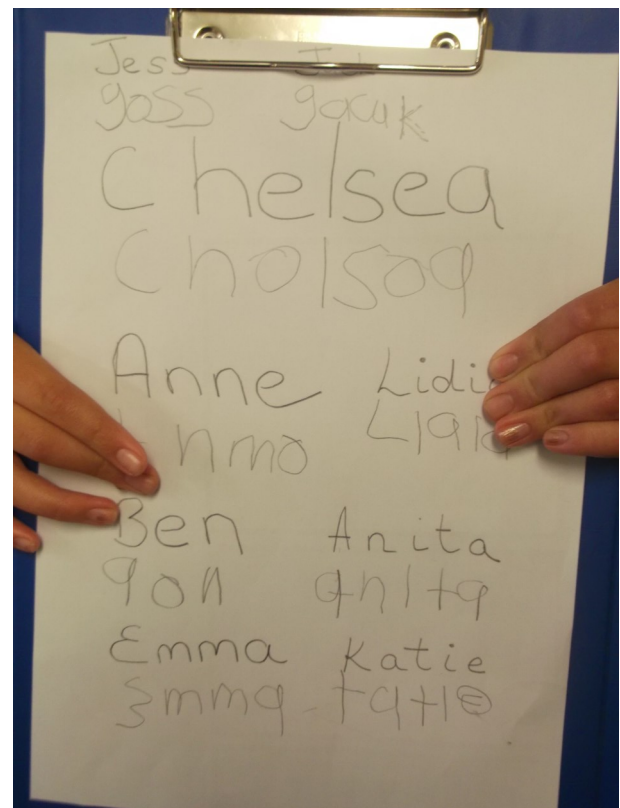 Jess
goss gacuk
Chelsea
Cholsoq
Anne Lidi
nmo L1919
Ben Anita
qon qnitq
Emma Katie
Emmq tqtie